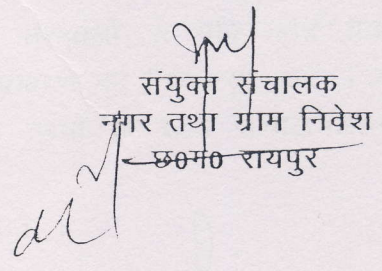 संयुक्त संचालक
नगर तथा ग्राम निवेश
छ0ग0 रायपुर